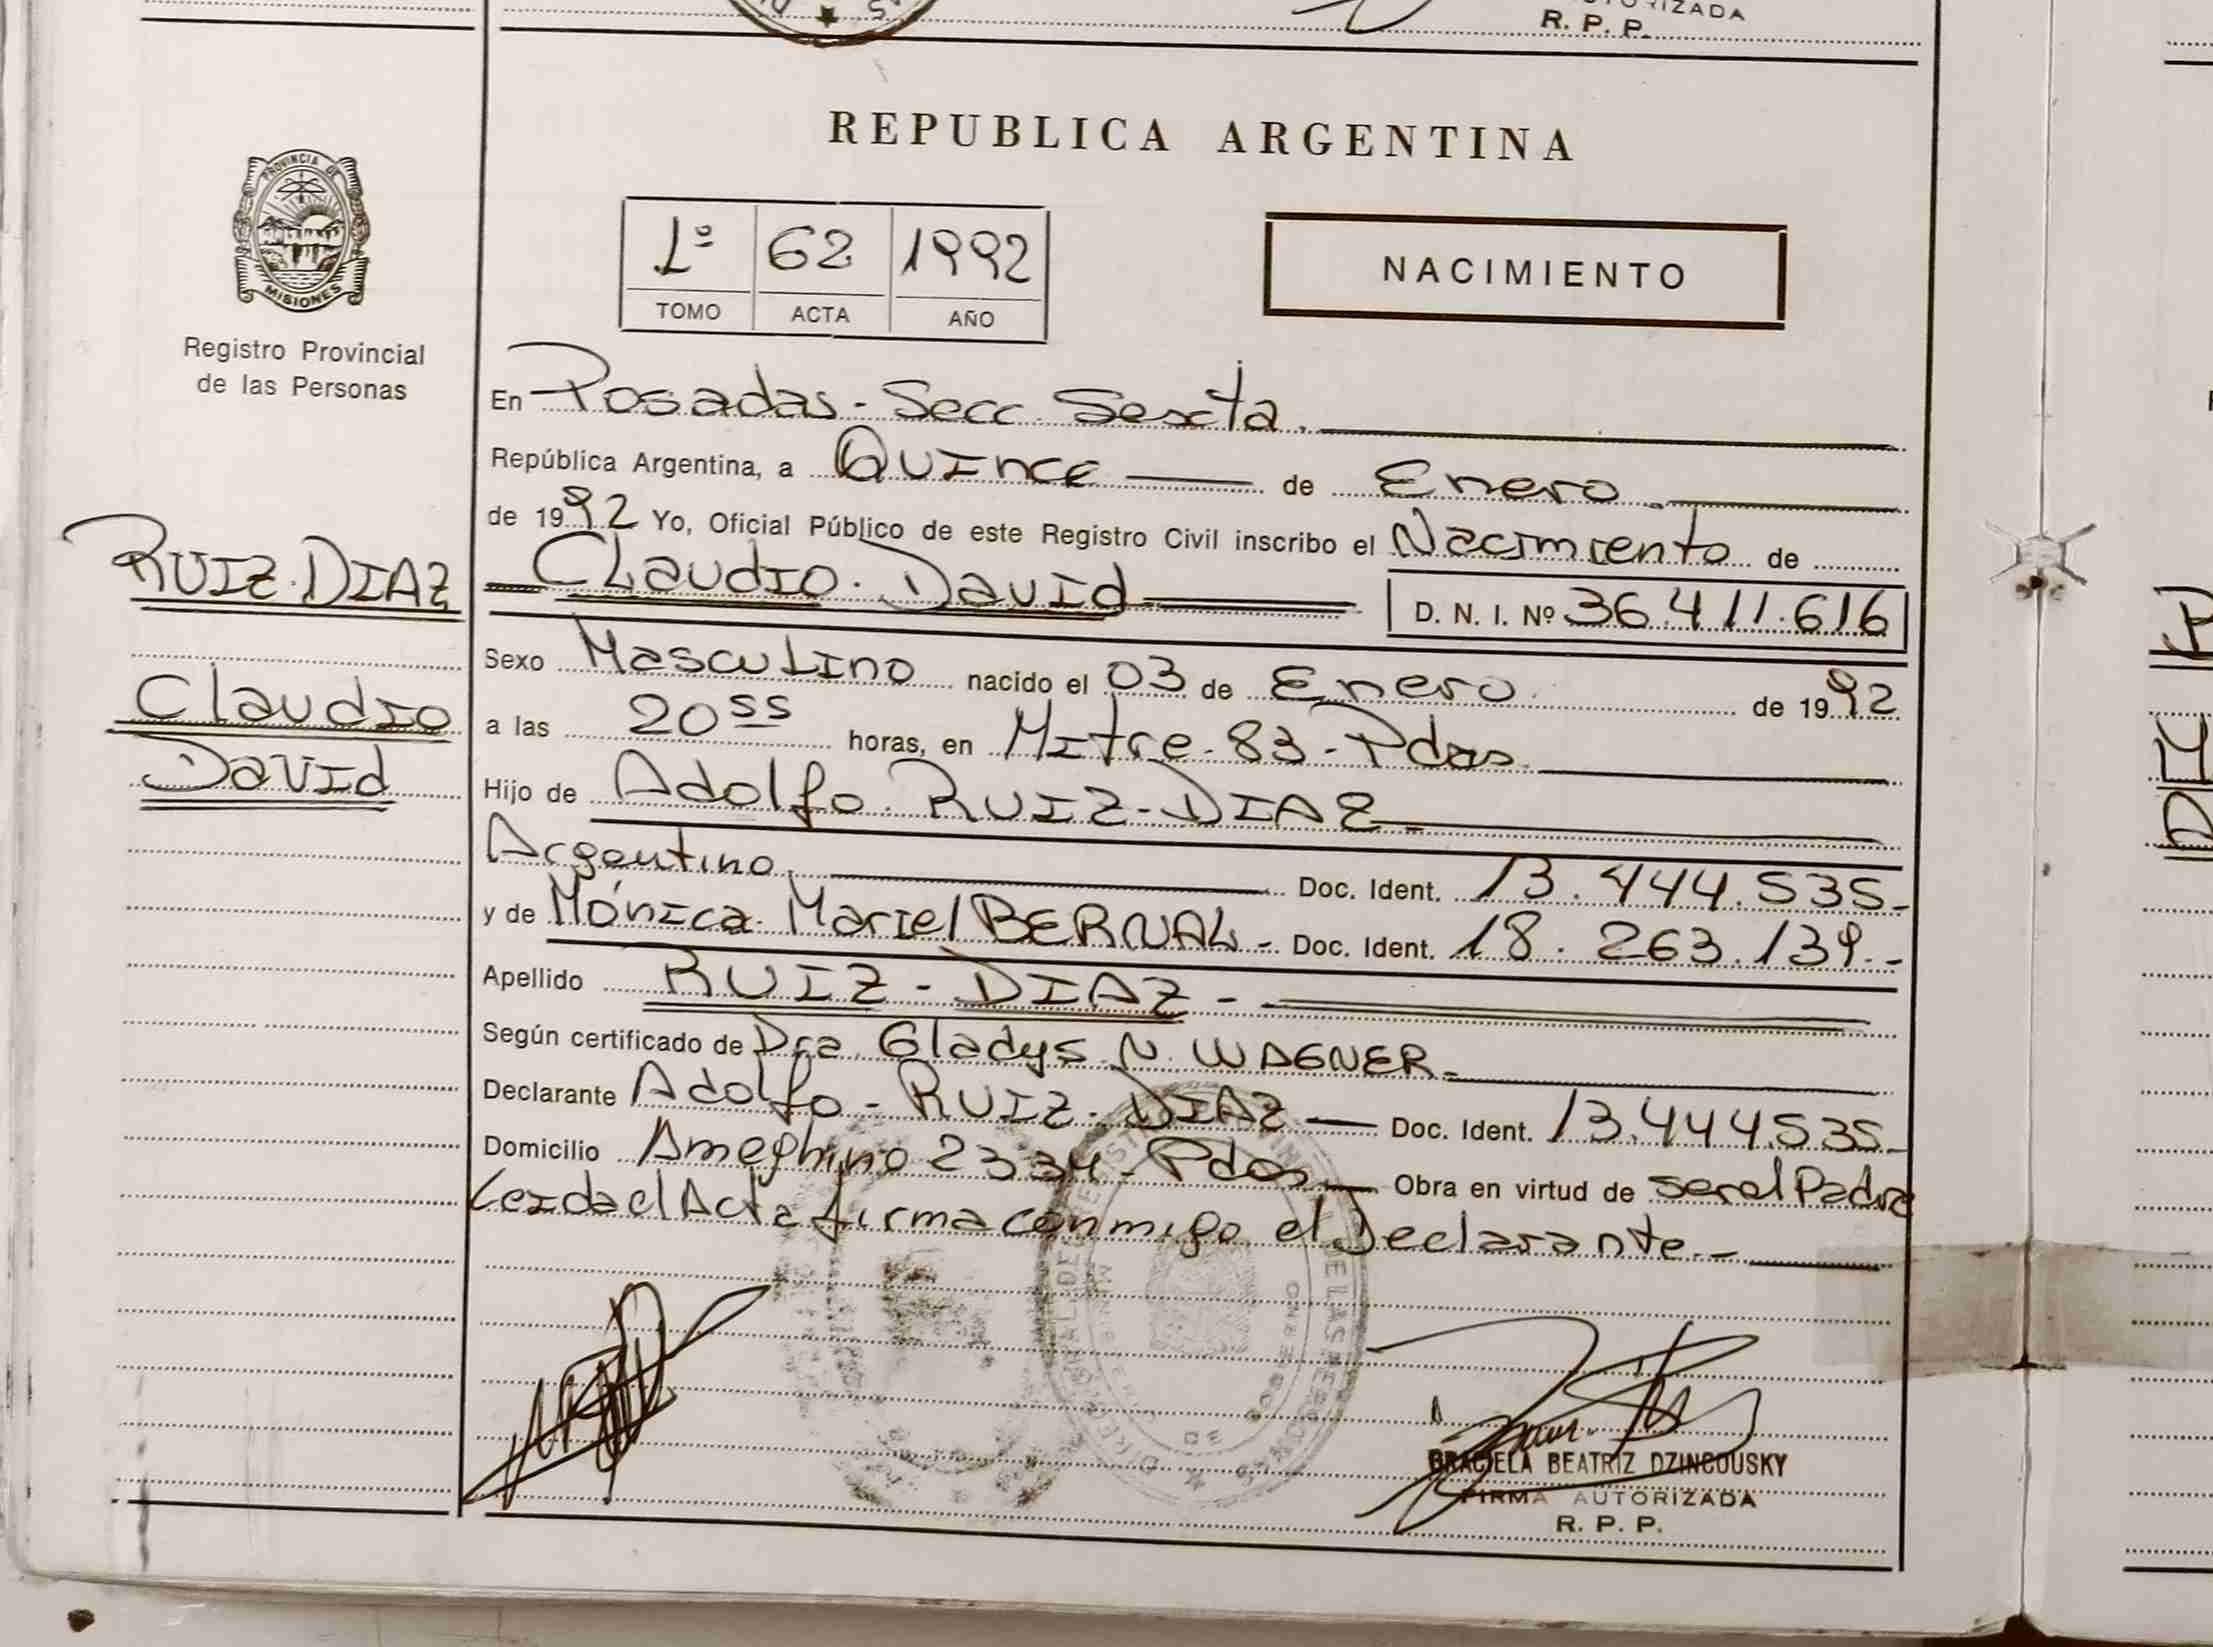 R. P. P.
REPUBLICA ARGENTINA
PROVINCIA DE
MISIONES
Registro Provincial
de las Personas
1º 62 1992
TOMO ACTA AÑO
NACIMIENTO
RUIZ-DIAZ
Claudio
David
En Posadas - Secc. Sexta.
República Argentina, a Quince de Enero
de 1992 Yo, Oficial Público de este Registro Civil inscribo el Nacimiento de
Claudio David D. N. I. Nº 36.411.616
Sexo Masculino nacido el 03 de Enero de 1992
a las 20 55 horas, en Mitre - 83 - Pdas.
Hijo de Adolfo RUIZ-DIAZ
Argentino Doc. Ident. 13.444.535-
y de Mónica Mariel BERNAL - Doc. Ident. 18.263.139.-
Apellido RUIZ - DIAZ -
Según certificado de Dra. Gladys N. WAGNER.
Declarante Adolfo - RUIZ - DIAZ Doc. Ident. 13.444.535-
Domicilio Ameghino 2334 - Pdas Obra en virtud de ser el Padre
Leida el Acta firma conmigo el Declarante.-
GRACIELA BEATRIZ DZINCOUSKY
FIRMA AUTORIZADA
R. P. P.